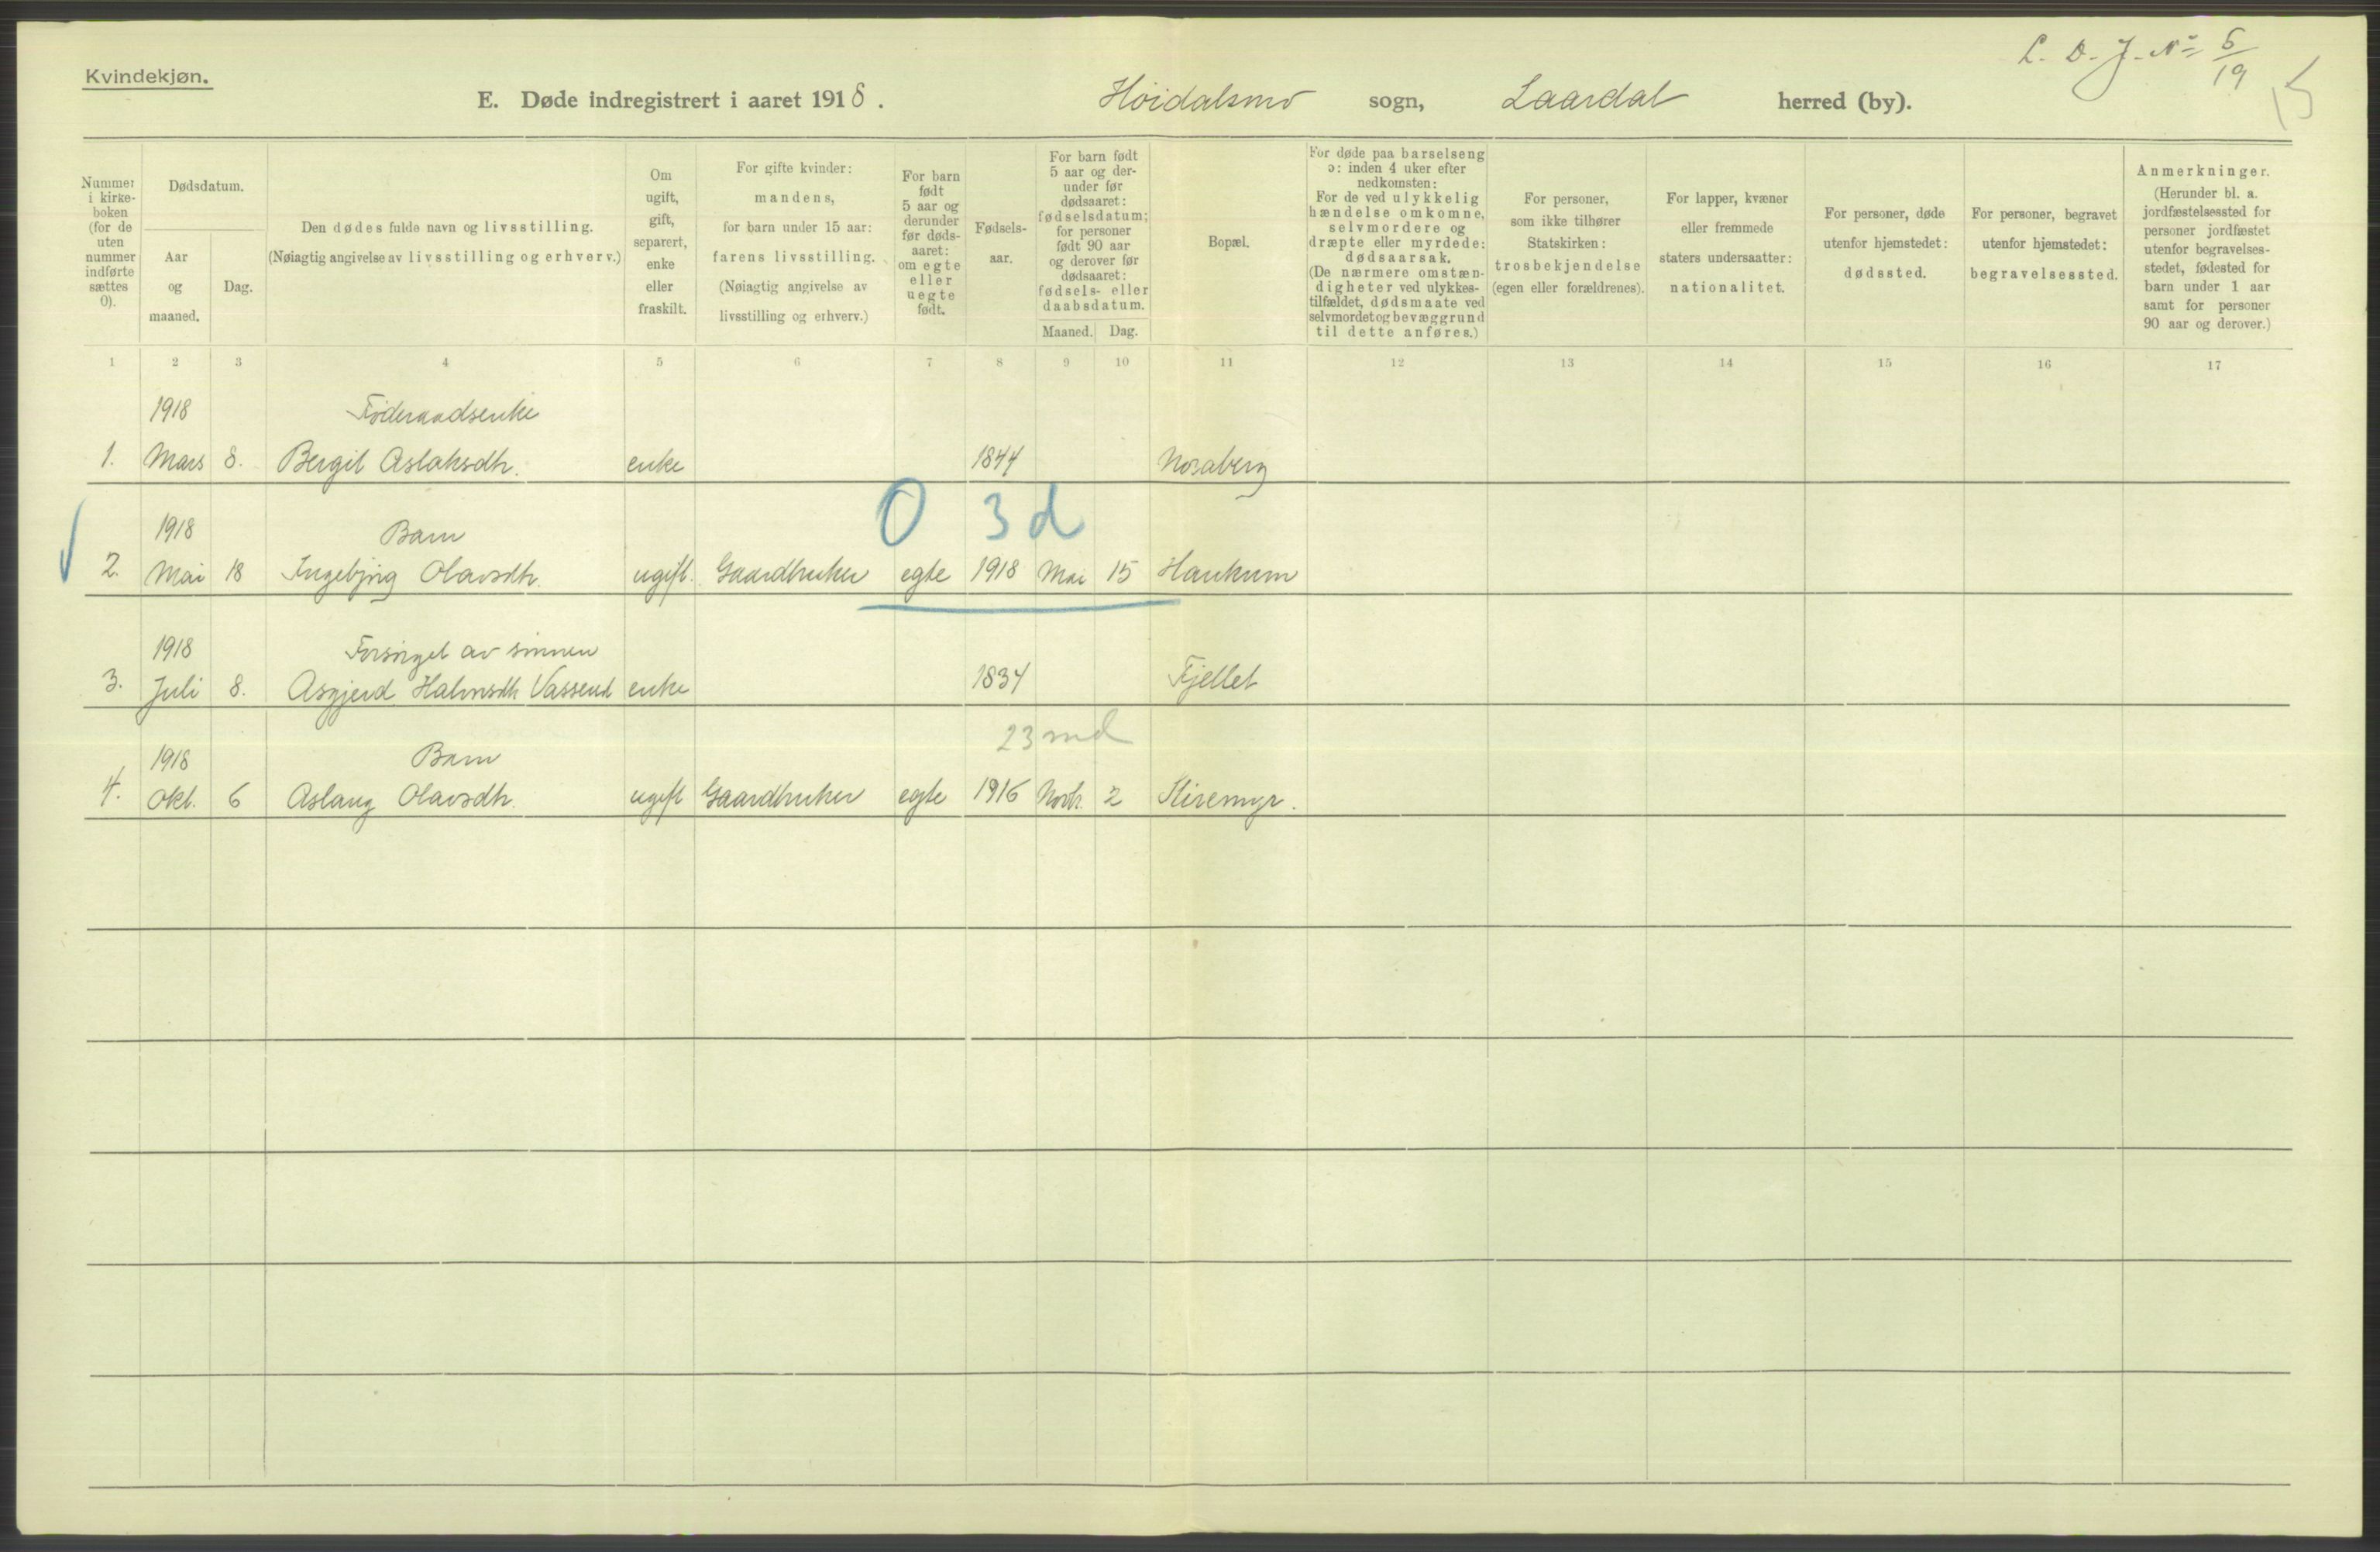 Kvindekjøn.
L. D. J. No 5/19
15
E. Døde indregistrert i aaret 1918. Høidalsmo sogn, Laardal herred (by).
Nummer i kirkeboken (for de uten nummer indførte sættes 0).
Dødsdatum.
Aar og maaned.
Dag.
Den dødes fulde navn og livsstilling.
(Nøiagtig angivelse av livsstilling og erhverv.)
Om ugift, gift, separert, enke eller fraskilt.
For gifte kvinder: mandens, for barn under 15 aar: farens livsstilling.
(Nøiagtig angivelse av livsstilling og erhverv.)
For barn født 5 aar og derunder før dødsaaret: om egte eller uegte født.
Fødselsaar.
For barn født 5 aar og derunder før dødsaaret: fødselsdatum; for personer født 90 aar og derover før dødsaaret: fødsels- eller daabsdatum.
Maaned. Dag.
Bopæl.
For døde paa barselseng ɔ: inden 4 uker efter nedkomsten: For de ved ulykkelig hændelse omkomne, selvmordere og dræpte eller myrdede: dødsaarsak.
(De nærmere omstændigheter ved ulykkestilfældet, dødsmaate ved selvmordet og bevæggrund til dette anføres.)
For personer, som ikke tilhører Statskirken: trosbekjendelse (egen eller forældrenes).
For lapper, kvæner eller fremmede staters undersaatter: nationalitet.
For personer, døde utenfor hjemstedet: dødssted.
For personer, begravet utenfor hjemstedet: begravelsessted.
Anmerkninger.
(Herunder bl. a. jordfæstelsessted for personer jordfæstet utenfor begravelsesstedet, fødested for barn under 1 aar samt for personer 90 aar og derover.)
1 2 3 4 5 6 7 8 9 10 11 12 13 14 15 16 17
1918 Føderaadsenke
1. Mars 8. Bergit Aslaksdtr. enke 1844 Nosaberg
0 3 d
1918 Barn
2. Mai 18 Ingebjørg Olavsdtr. ugift. Gaardbruker egte 1918 Mai 15 Haukum
1918 Forsørget av sønnen
3. Juli 8. Asgjerd Halvorsdtr. Vassend enke 1834 Fjellet
23 md
1918 Barn
4. Okt. 6 Aslaug Olavsdtr. ugift Gaardbruker egte 1916 Novbr. 2 Stiremyr.